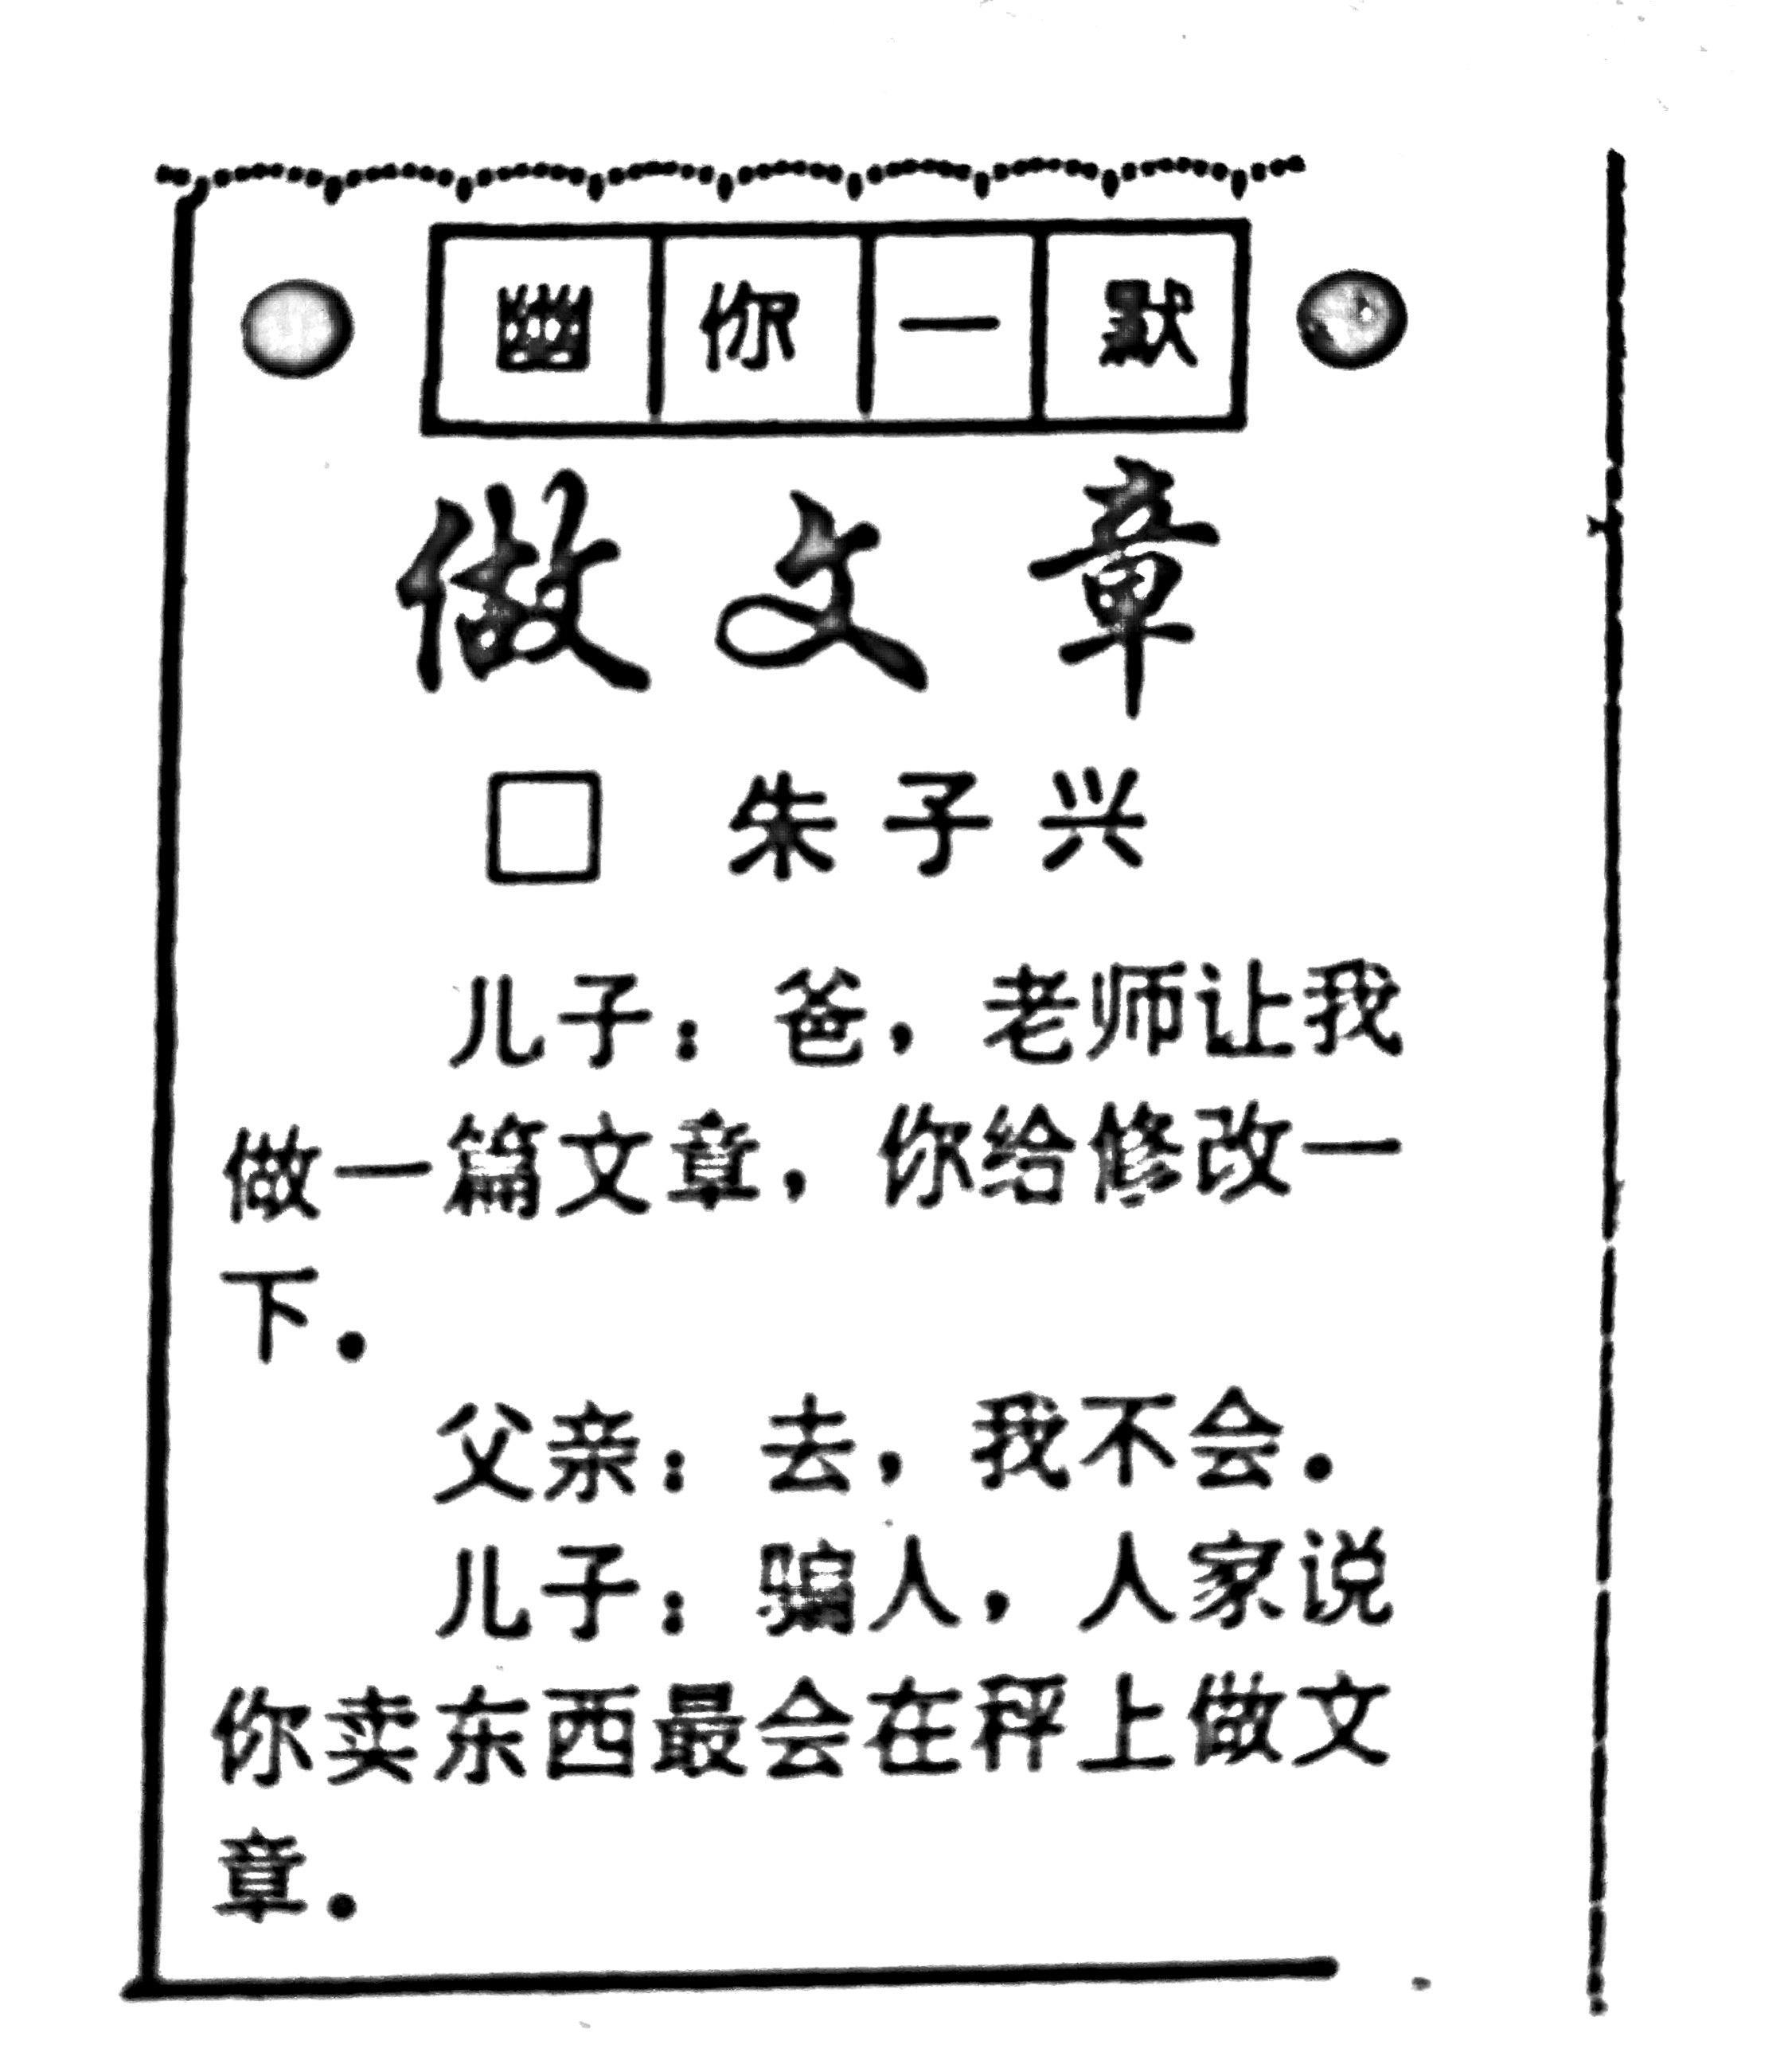 幽你一默
做文章
□ 朱子兴
儿子：爸，老师让我
做一篇文章，你给修改一
下．
父亲：去，我不会．
儿子：骗人，人家说
你卖东西最会在秤上做文
章．